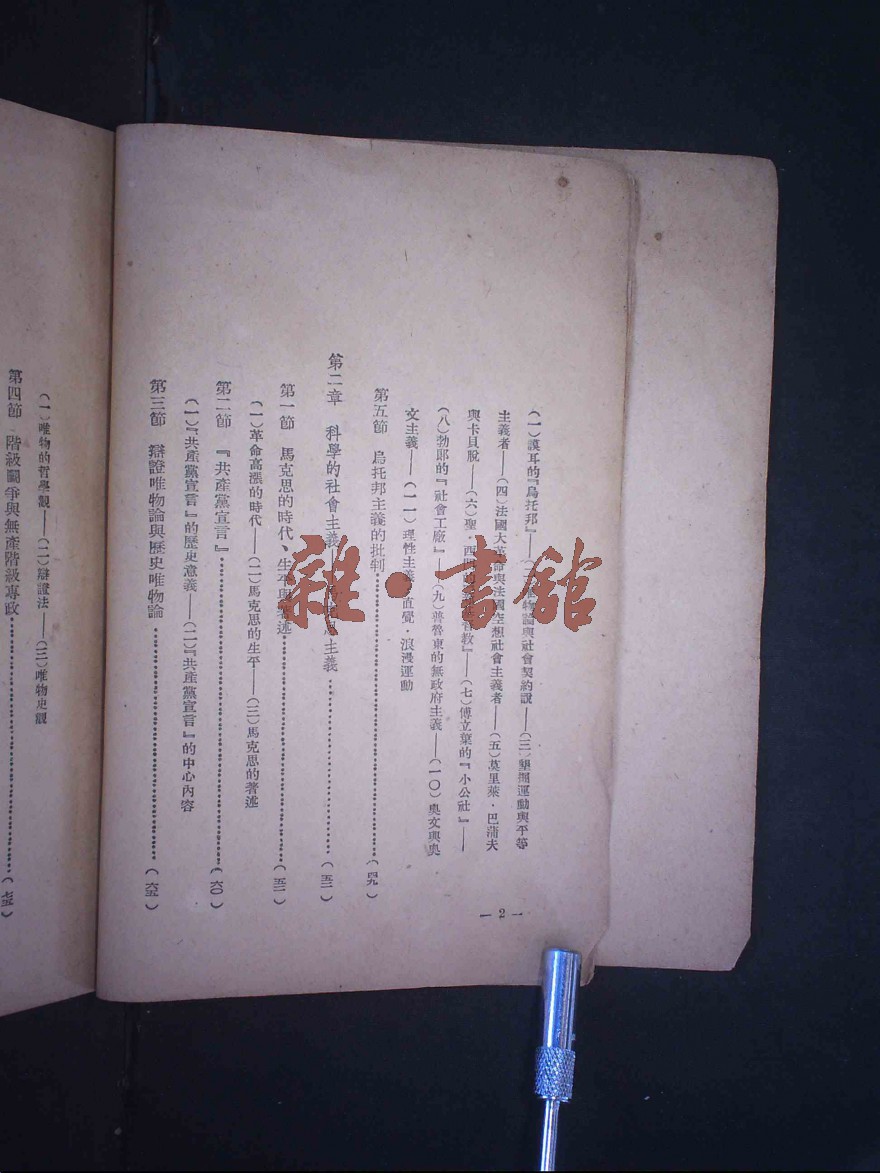 (一)謨耳的『烏托邦』——(二)唯物論與社會契約說——(三)墾掘運動與平等
主義者——(四)法國大革命與法國空想社會主義者——(五)莫里萊·巴蒲夫
與卡貝脫——(六)聖·西門的 教』——(七)傅立葉的『小公社』——
(八)勃郎的『社會工廠』——(九)普魯東的無政府主義——(一〇)奧文與奧
文主義——(一一)理性主義·直覺·浪漫運動
第五節 烏托邦主義的批判…………(四九)
第二章 科學的社會主義 馬克思主義…………(五二)
第一節 馬克思的時代、生平與著述…………(五二)
(一)革命高漲的時代——(二)馬克思的生平——(三)馬克思的著述
第二節 『共產黨宣言』…………(六〇)
(一)『共產黨宣言』的歷史意義——(二)『共產黨宣言』的中心內容
第三節 辯證唯物論與歷史唯物論…………(六五)
— 2 —
(一)唯物的哲學觀——(二)辯證法——(三)唯物史觀
第四節 階級鬭爭與無產階級專政…………(七五)
雜·書館